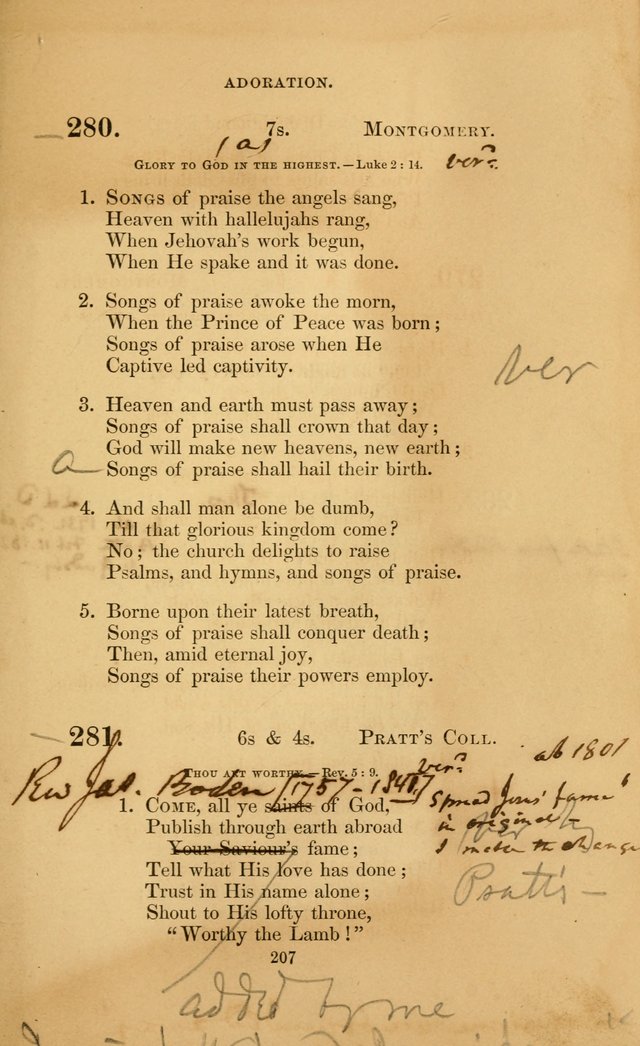 ADORATION.
280. 7s. MONTGOMERY.
Jas
GLORY TO GOD IN THE HIGHEST.—Luke 2 : 14. ver?
1. SONGS of praise the angels sang,
Heaven with hallelujahs rang,
When Jehovah's work begun,
When He spake and it was done.
2. Songs of praise awoke the morn,
When the Prince of Peace was born;
Songs of praise arose when He
Captive led captivity.
ver
3. Heaven and earth must pass away;
Songs of praise shall crown that day;
God will make new heavens, new earth;
a Songs of praise shall hail their birth.
4. And shall man alone be dumb,
Till that glorious kingdom come?
No; the church delights to raise
Psalms, and hymns, and songs of praise.
5. Borne upon their latest breath,
Songs of praise shall conquer death;
Then, amid eternal joy,
Songs of praise their powers employ.
281. 6s & 4s. PRATT'S COLL.
ab 1801
THOU ART WORTHY.—Rev. 5 : 9. ver?
Rev Jas. Boden (1757-1841)
1. COME, all ye saints of God,
Spread Jesus' fame"
Publish through earth abroad
in original—
Your Saviour's fame;
I make the change
Tell what His love has done;
Trust in His name alone;
Pratt's —
Shout to His lofty throne,
"Worthy the Lamb!"
207
added by me